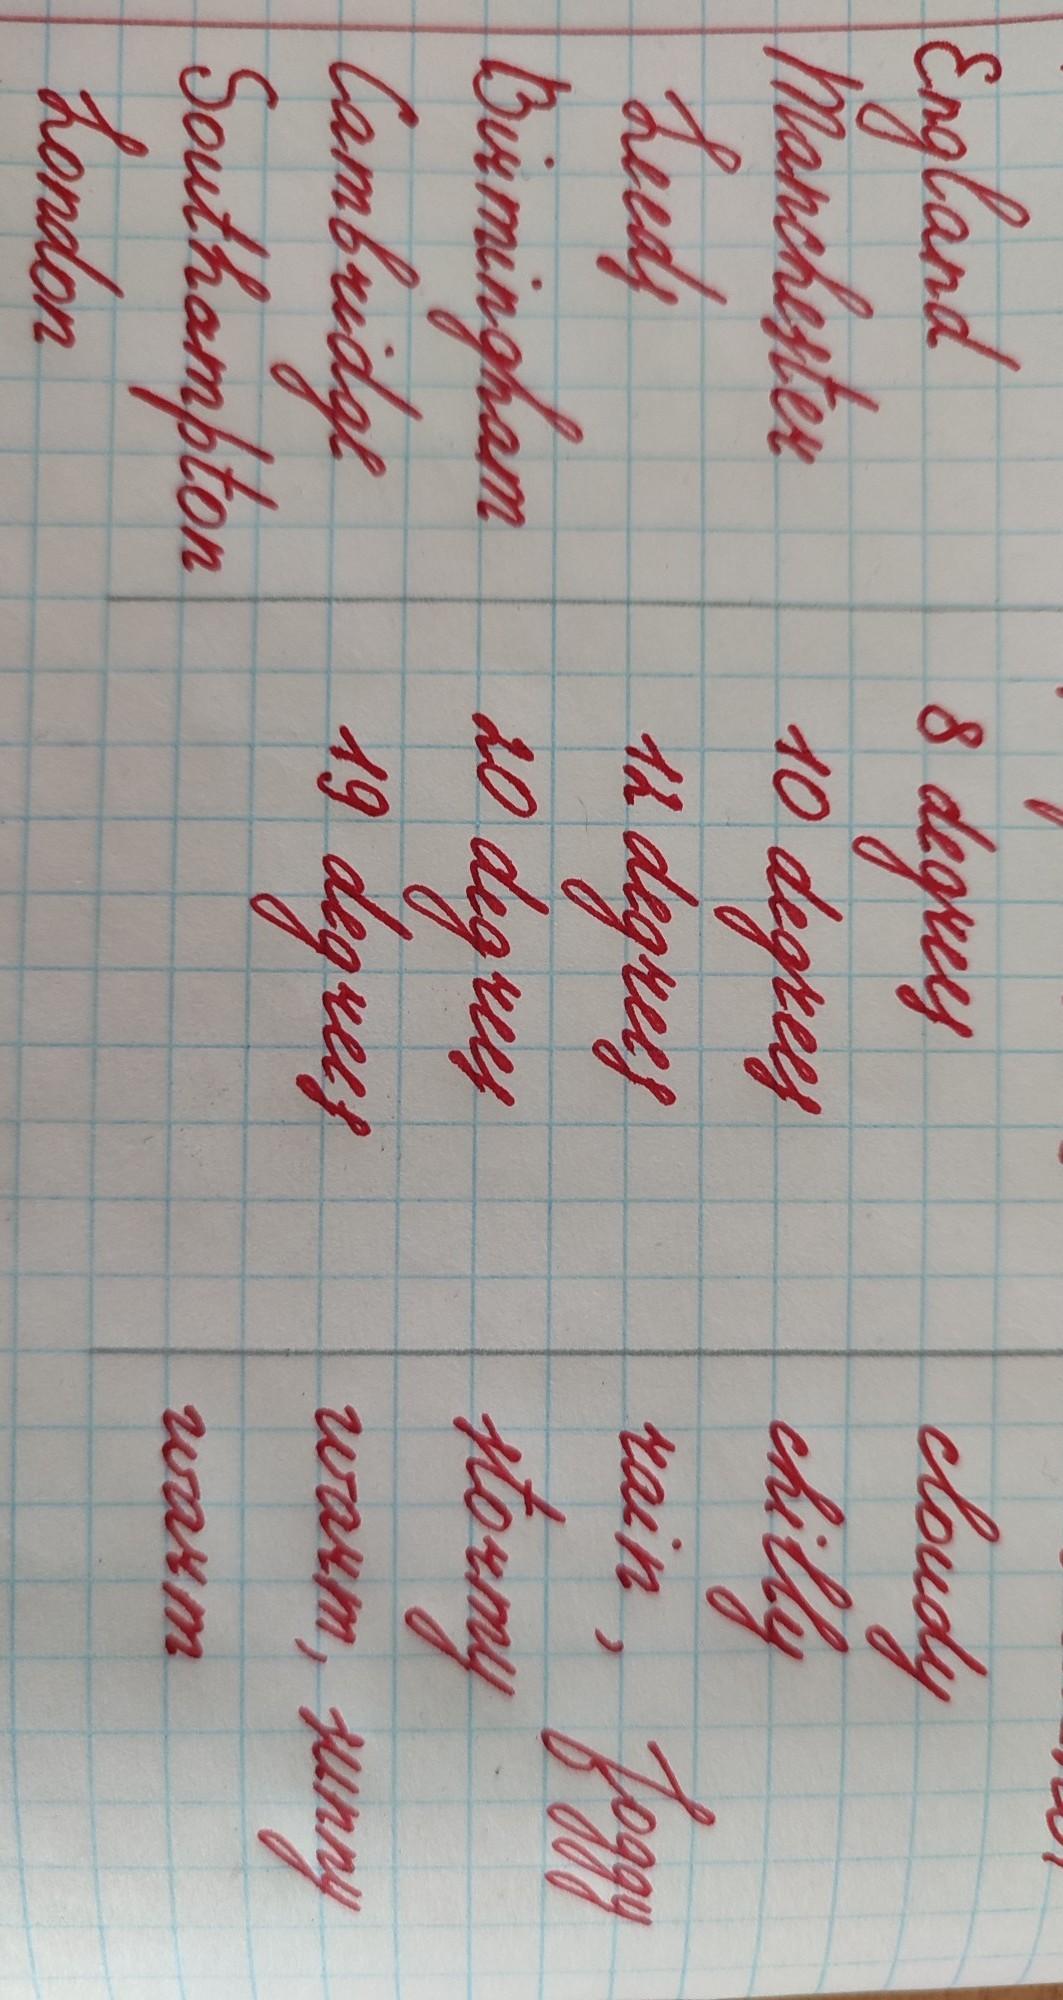 England 8 degrees cloudy
Manchester 10 degrees chilly
Leeds 12 degrees rain, foggy
Birmingham 20 degrees stormy
Cambridge 19 degrees warm, sunny
Southampton warm
London